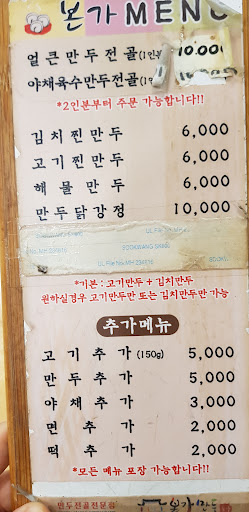 본가 MENU
얼큰만두전골(1인분) 10,000
야채육수만두전골(1인
*2인분부터 주문 가능합니다!!
김치찐만두 6,000
고기찐만두 6,000
해물만두 6,000
만두닭강정 10,000
*기본 : 고기만두 + 김치만두
원하실경우 고기만두만 또는 김치만두만 가능
추가메뉴
고기추가 (150g) 5,000
만두추가 5,000
야채추가 3,000
면추가 2,000
떡추가 2,000
*모든 메뉴 포장 가능합니다!!
만두전골전문점 본가만두